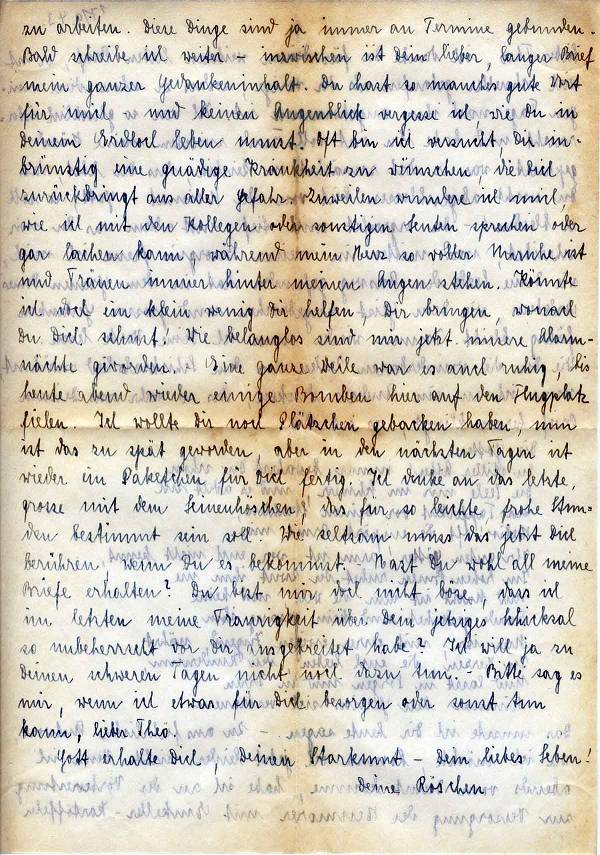 zu arbeiten. Diese Dinge sind ja immer an Termine gebunden.
Bald schreibe ich weiter – inzwischen ist dein lieber, langes Brief
mein ganzer Gedankeninhalt. Du hast so manches gute Wort
für mich – und keinen Augenblick vergesse ich, wie Du in
deinem Erdloch leben musst. Oft bin ich versucht, Dir in-
brünstig eine gnädige Krankheit zu wünschen, die Dich
zurückbringt aus aller Gefahr. Zuweilen wundere ich mich,
wie ich mit den Kollegen oder sonstigen Leuten sprechen oder
gar lachen kann, während mein Herz so voller Unruhe ist
und Tränen immer hinter meinen Augen stehen. Könnte
ich doch ein klein wenig Dir helfen, Dir bringen, wonach
Du Dich sehnst! Wie belanglos sind nun jetzt unsere Alarm-
nächte geworden. Eine ganze Weile war es auch ruhig, bis
heute abend wieder einige Bomben hier auf den Flugplatz
fielen. Ich wollte Dir noch Plätzchen gebacken haben, nun
ist das zu spät geworden, aber in den nächsten Tagen ist
wieder ein Päketchen für Dich fertig. Ich denke an das letzte,
grosse mit dem Leinenhöschen, das für so leichte, frohe Stun-
den bestimmt sein soll. Wie seltsam muss das jetzt Dich
berühren, wenn Du es bekommst. – Hast Du wohl all meine
Briefe erhalten? Du bist mir doch nicht böse, dass ich
im letzten meine Traurigkeit über dem jetziges Schicksal
so unbeherrscht vor dir ausgebreitet habe? Ich will ja zu
Deinen schweren Tagen nicht noch dazu tun. – Bitte sag es
mir, wenn ich etwas für Dich besorgen oder sonst tun
kann, lieber Theo.
Gott erhalte Dich, Deinen Starkmut – dein liebes Leben!
Deine Röschen